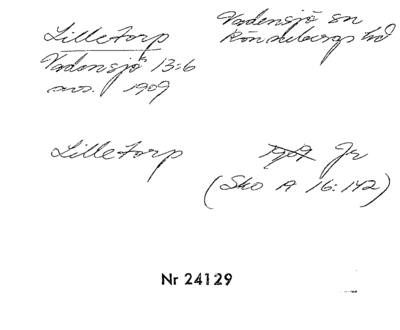 Lilletorp
Vadensjö sn
Rönnebergs hd
Vadensjö 13:6
avs. 1909
Lilletorp
1909 Jr
(Sko A 16:142)
Nr 24129